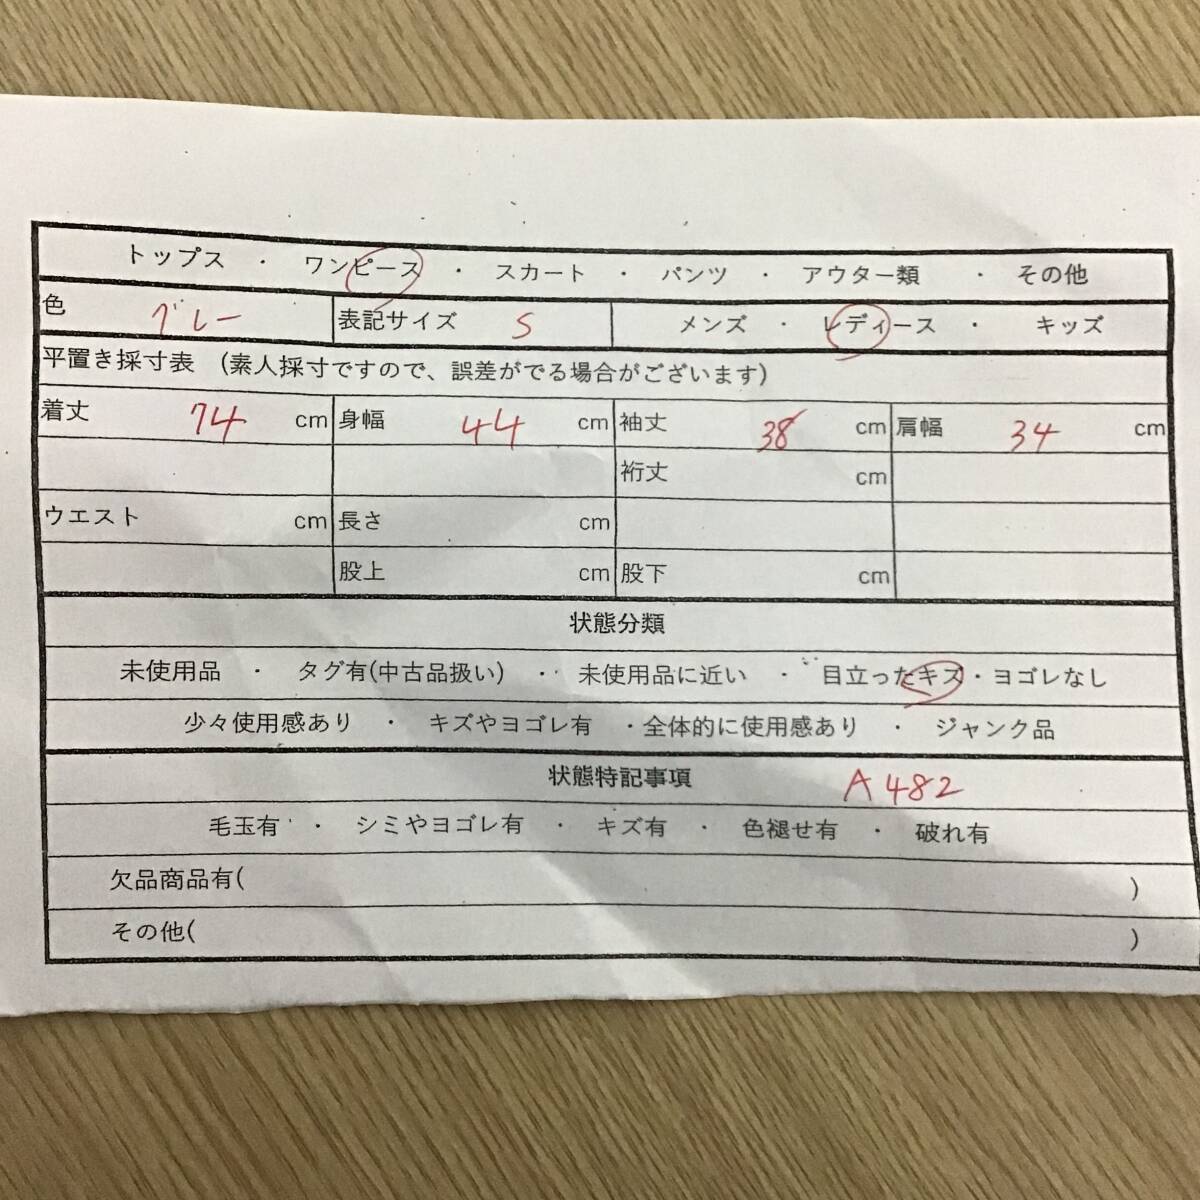 トップス ・ ワンピース ・ スカート ・ パンツ ・ アウター類 ・ その他
色 グレー 表記サイズ S メンズ ・ レディース ・ キッズ
平置き採寸表 (素人採寸ですので、誤差がでる場合がございます)
着丈 74 cm 身幅 44 cm 袖丈 38 cm 肩幅 34 cm
裄丈 cm
ウエスト cm 長さ cm
股上 cm 股下 cm
状態分類
未使用品 ・ タグ有(中古品扱い) ・ 未使用品に近い ・ 目立ったキズ・ヨゴレなし
少々使用感あり ・ キズやヨゴレ有 ・全体的に使用感あり ・ ジャンク品
状態特記事項 A482
毛玉有 ・ シミやヨゴレ有 ・ キズ有 ・ 色褪せ有 ・ 破れ有
欠品商品有( )
その他( )